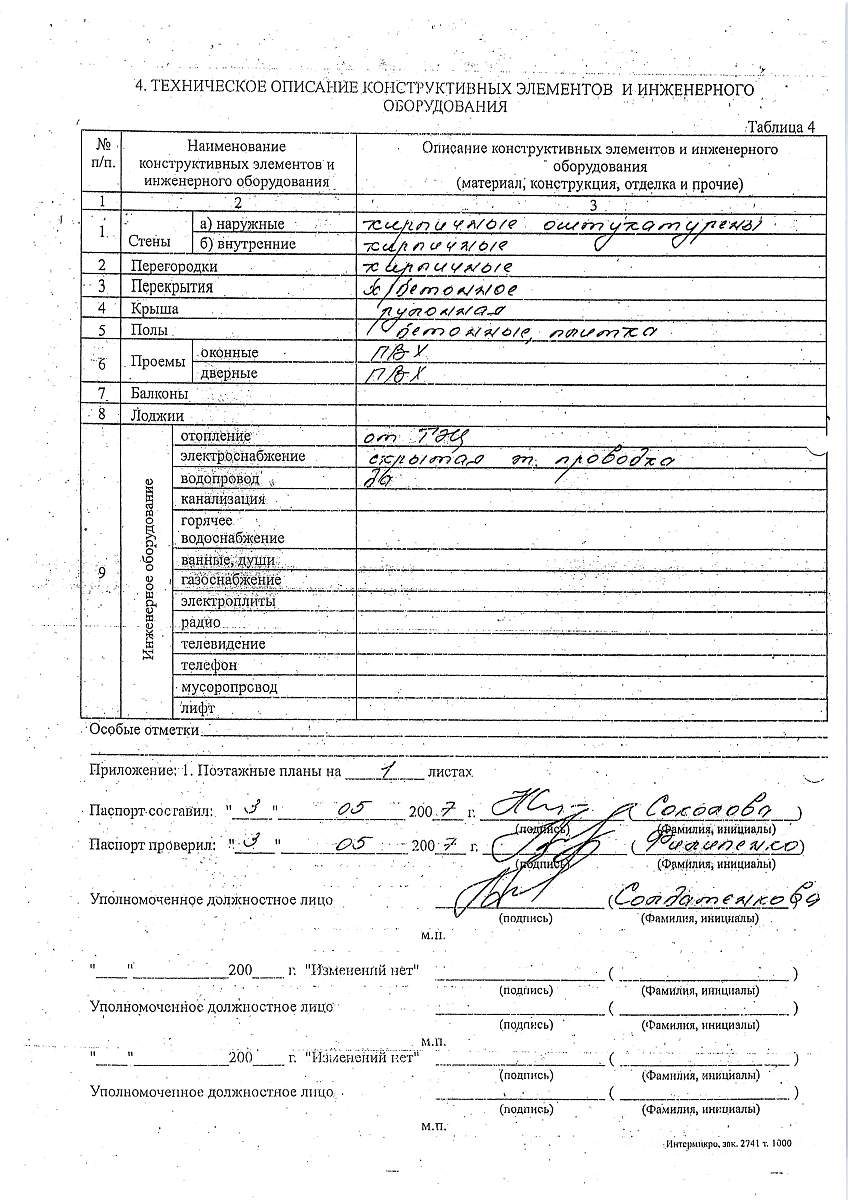 4. ТЕХНИЧЕСКОЕ ОПИСАНИЕ КОНСТРУКТИВНЫХ ЭЛЕМЕНТОВ И ИНЖЕНЕРНОГО
ОБОРУДОВАНИЯ
Таблица 4
№ п/п. Наименование конструктивных элементов и инженерного оборудования Описание конструктивных элементов и инженерного оборудования (материал, конструкция, отделка и прочие)
1 2 3
1. Стены а) наружные кирпичные оштукатурены
б) внутренние кирпичные
2 Перегородки кирпичные
3 Перекрытия ж/бетонное
4 Крыша рулонная
5 Полы бетонные, плитка
6 Проемы оконные ПВХ
дверные ПВХ
7 Балконы
8 Лоджии
9 Инженерное оборудование отопление от ТЭЦ
электроснабжение скрытая эл. проводка
водопровод да
канализация
горячее
водоснабжение
ванные, души
газоснабжение
электроплиты
радио
телевидение
телефон
мусоропровод
лифт
Особые отметки
Приложение: 1. Поэтажные планы на 1 листах
Паспорт составил: "3" 05 2007 г. (Соколова)
(подпись) (Фамилия, инициалы)
Паспорт проверил: "3" 05 2007 г. (Филипенко)
(подпись) (Фамилия, инициалы)
Уполномоченное должностное лицо (Солдатенкова
(подпись) (Фамилия, инициалы)
М.П.
"___"____________200____ г. "Изменений нет" ( )
(подпись) (Фамилия, инициалы)
Уполномоченное должностное лицо ( )
(подпись) (Фамилия, инициалы)
М.П.
"___"____________200____ г. "Изменений нет" ( )
(подпись) (Фамилия, инициалы)
Уполномоченное должностное лицо ( )
(подпись) (Фамилия, инициалы)
М.П.
Интермикро, зак. 2741 т. 1000